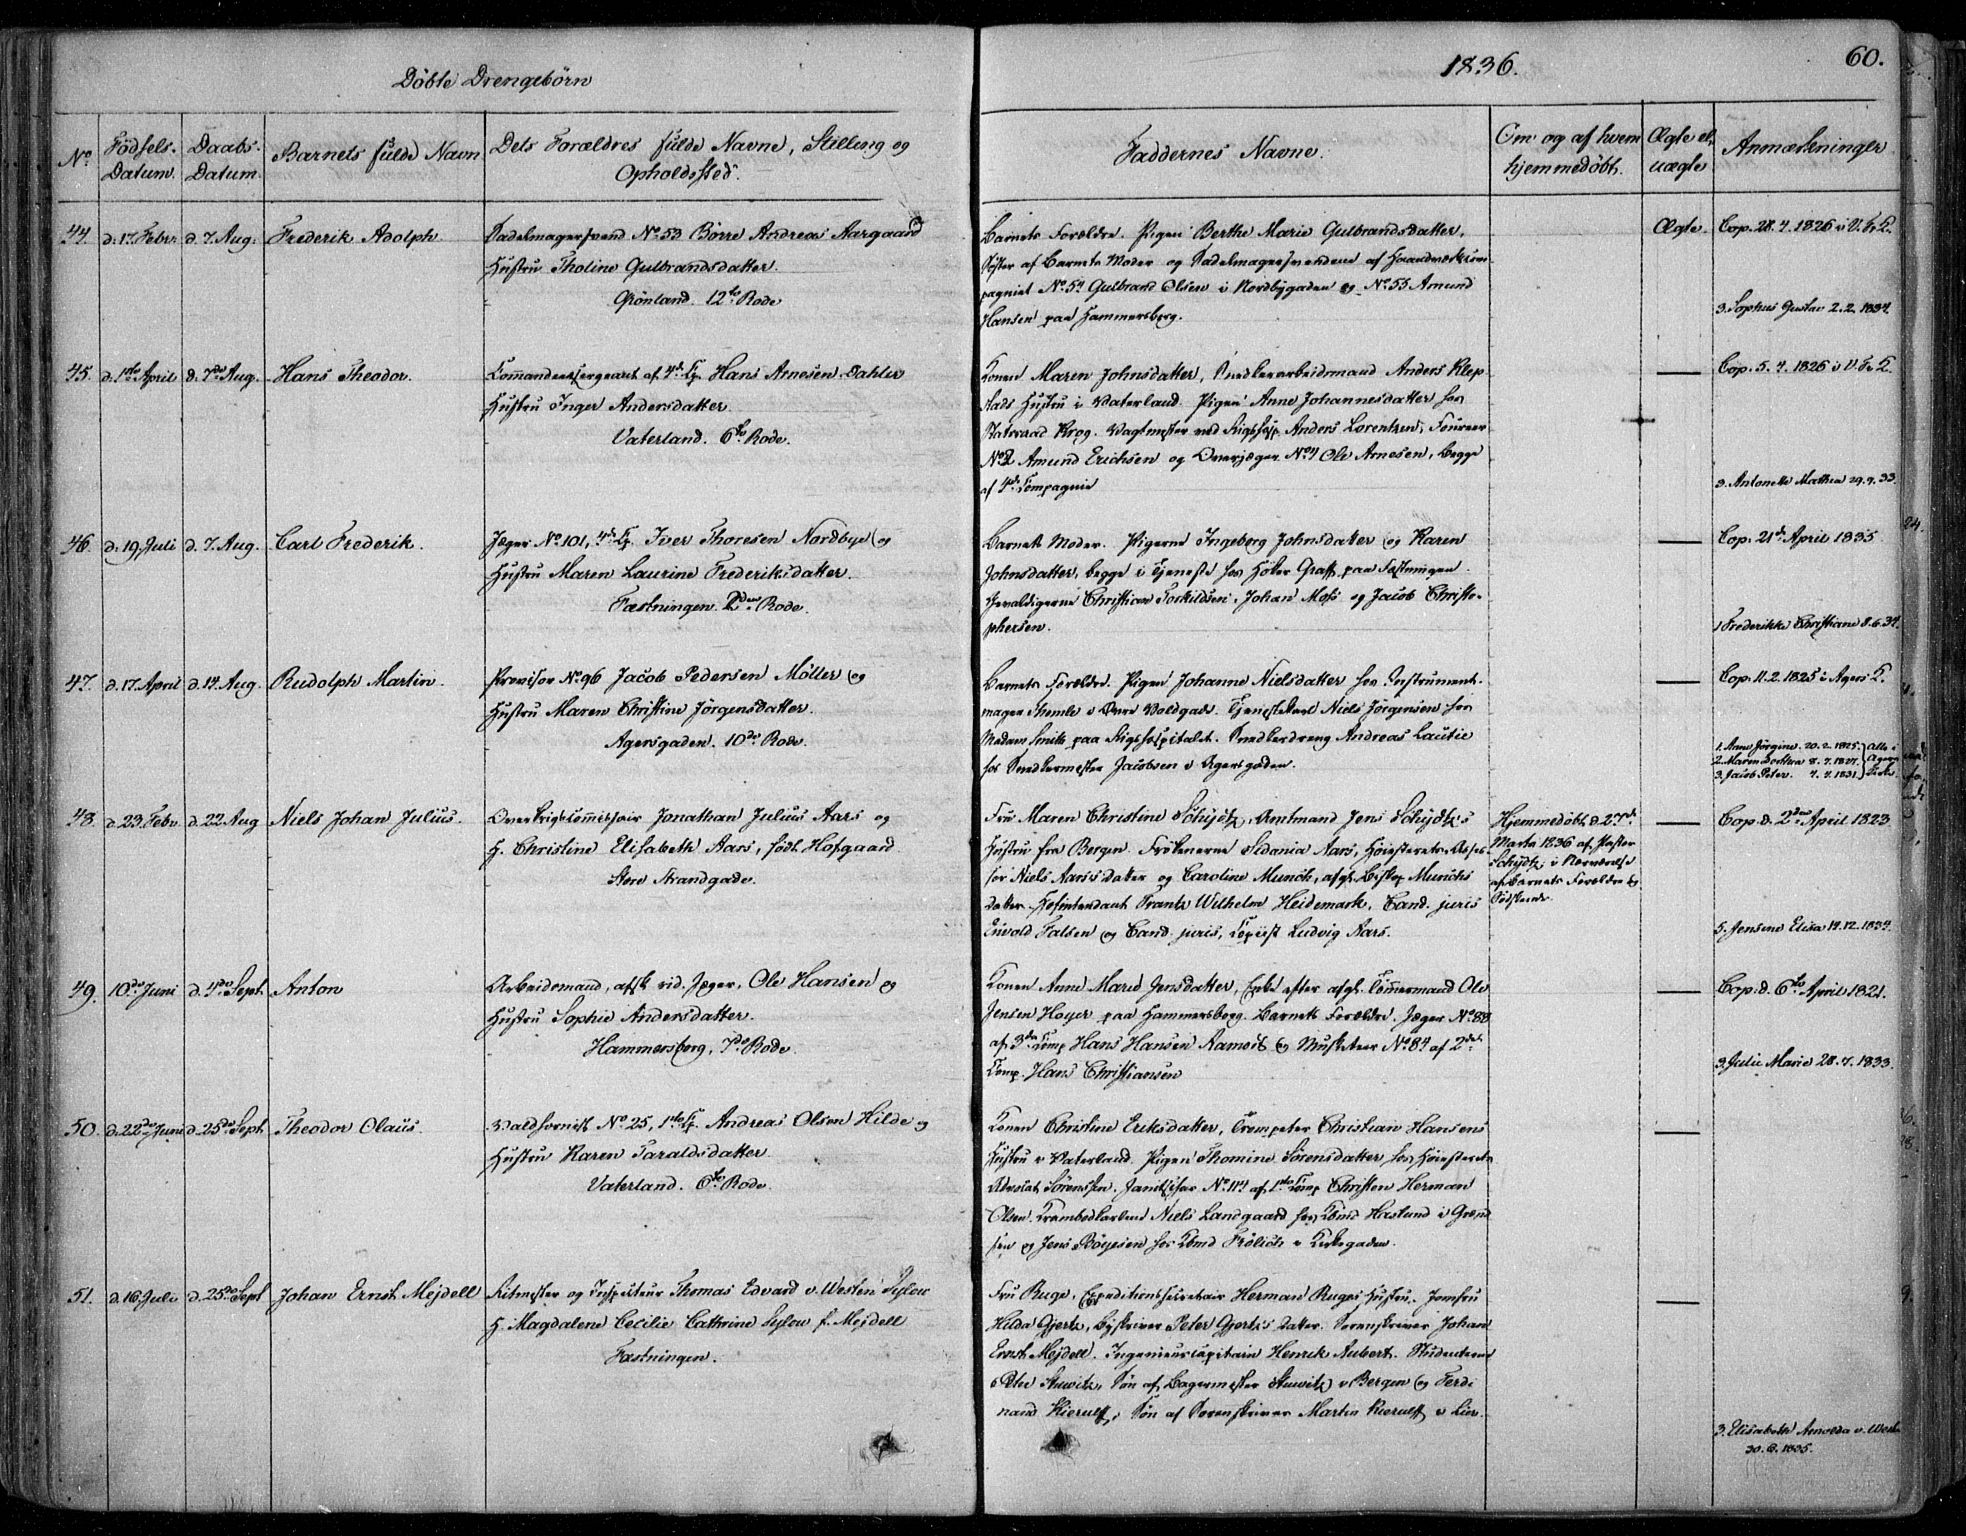 1836.
60.
Döbte Drengebörn
No
Födsels-Datum.
Daabs-Datum
Barnets fulde Navn
Dets Forældres fulde Navne, Stilling og Opholdssted.
Faddernes Navne.
Om og af hvem hjemmedöbt.
Ægte el. uægte
Anmærkninger
44. d. 17. Febr. d. 7. Aug. Frederik Adolph.
Sadelmagersvend No 53 Börre Andreas Aargaard
Hustru Tholine Gulbrandsdatter.
Grönland. 12te Rode
Barnets Forældre. Pigen Berthe Marie Gulbrandsdatter,
Söster af Barnets Moder og Sadelmagersvendene af Haandværkscom-
pagniet No 54 Gulbrand Olsen i Nordbygaden og No 55 Amund
Hansen paa Hammersborg.
Ægte.
Cop. 28.7.1826 i V. Fr. K.
3. Sophus Gustav 2.2.1834.
45. d. 1ste April d. 7de Aug. Hans Theodor.
Commandeersergeant af 4de Cp. Hans Arnesen Dahler
Hustru Inger Andersdatter.
Vaterland. 6te Rode.
Konen Maren Johnsdatter, Snedkerarbeidsmand Anders Klep-
stads Hustru i Vaterland. Pigen Anne Johannesdatter hos
Statsraad Krog. Vagtmester ved Rigshosp. Anders Lorentzen, Foureer
No 2 Amund Erichsen og Overjæger No 7 Ole Arnesen, begge
af 4de Compagnie
Cop. 5.7.1826 i V. Fr. K.
3. Antonette Mathea 29.9.33.
46. d. 19. Juli d. 7. Aug. Carl Frederik.
Jæger No 101, 4de Cp. Iver Thoresen Nordbye og
Hustru Maren Laurine Frederiksdatter.
Fæstningen. 2den Rode.
Barnets Moder. Pigerne Ingeborg Johnsdatter og Karen
Johnsdatter, begge i Tjeneste hos Höker Graff paa Fæstningen.
Gevaldigerne Christian Torkildsen, Johan Moss og Jacob Christo-
phersen.
Cop. 21de April 1835
1 Frederikke Christiane 8.6.34.
47. d. 17. April d. 14. Aug. Rudolph Martin.
Provisor No 96 Jacob Pedersen Möller og
Hustru Maren Christine Jörgensdatter.
Agersgaden. 10de Rode.
Barnets Forældre. Pigen Johanne Nielsdatter hos Instrument-
mager Themle i Övre Voldgade. Tjenestekarl Niels Jörgensen hos
Madam Smith paa Rigshospitalet. Snedkerdreng Andreas Lautie
hos Snedkermester Jacobsen i Agersgaden.
Cop. 11.2.1825 i Agers K.
1. Anne Jörgine. 20.2.1825.
2. Maren Dorthea 8.7.1827.
3. Jacob Peter. 7.7.1831.
Alle i Agers Kirke
48. d. 23. Febr. d. 22 Aug Niels Johan Julius.
Overkrigscommissair Jonathan Julius Aars og
H. Christine Elisabeth Aars, född Hofgaard.
Store Strandgade.
Fru Maren Christine Schydtz, Amtmand Jens Schydtz's
Hustru fra Bergen. Frökenerne Sedania Aars, Höiesterets-Asses-
sor Niels Aars's Datter og Caroline Munch, afg. Biskop Munchs
Datter. Hofintendant Frantz Wilhelm Heidemark, Cand. juris
Envold Falsen og Cand. juris, Copiist Ludvig Aars.
Hjemmedöbt d. 27de
Marts 1836 af Pastor
Schydtz i Nærværelse
af Barnets Forældre og
Södskende.
Cop. d. 2den April 1823
5. Jensine Elisa 14.12.1834.
49. 10de Juni d. 4de Sept. Anton
Arbeidsmand, afsk. rid. Jæger, Ole Hansen og
Hustru Sophie Andersdatter.
Hammersborg, 7de Rode.
Konen Anne Marie Jensdatter, Enke efter afg. Tömmermand Ole
Jensen Hoyer paa Hammersborg. Barnets Forældre. Jæger No 88
af 3die Comp Hans Hansen Aamodt og Musketeer No 84 af 2det
Comp. Hans Christiansen
Cop. d. 6te April 1821.
3. Julie Marie 28.7.1833.
50. d. 22de Juni d. 25de Sept Theodor Olaus.
Valdhornist No 25, 1ste Cp. Andreas Olsen Hilde og
Hustru Karen Taraldsdatter.
Vaterland. 6te Rode.
Konen Christine Eriksdatter, Trompeter Christian Hansens
Hustru i Vaterland. Pigen Thomine Sörensdatter hos Höiesterets
Advokat Sörenssen. Janitschar No 114 af 1ste Comp Christen Herman
Olsen. Krambodkarlene Niels Landgaard hos Kbmd Haslund i Grænd-
sen og Jens Böyesen hos Kbmd Frölich i Kirkegaden.
51. d. 16. Juli d. 25de Sept Johan Ernst Mejdell
Ritmester og Inspecteur Thomas Edvard v. Westen Sylow
H. Magdalene Cecilie Cathrine Sylow f. Mejdell
Fæstningen.
Fru Ruge, Expeditionssecretair Herman Ruges Hustru. Jomfru
Hilda Gjertz, Byskriver Peter Gjertz's Datter. Sorenskriver Johan
Ernst Mejdell. Ingenieurcapitain Henrik Aubert. Studenterne
Peter Stuwitz, Sön af Bagermester Stuwitz i Bergen og Ferdi-
nand Kierulff, Sön af Sorenskriver Martin Kierulff i Lier.
3. Elisabeth Arnolda v. Westen
30.6.1835.